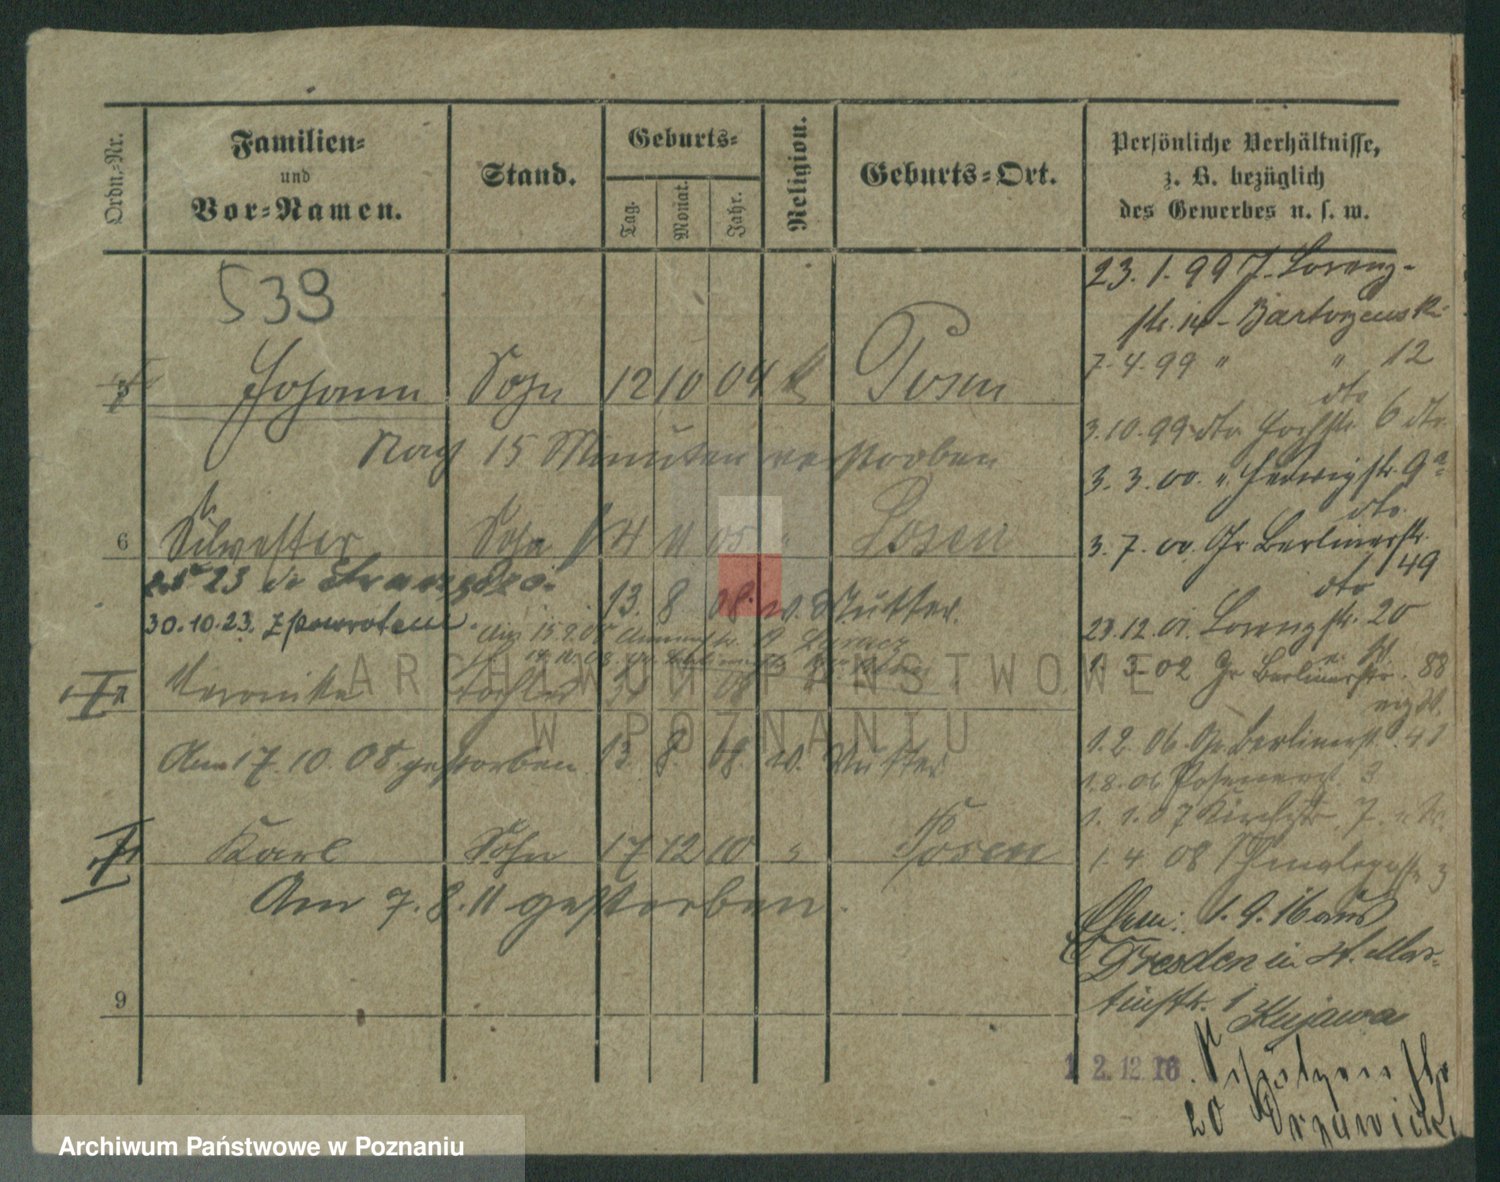 Ordn.-Nr.
Familien-
und
Vor-Namen.
Stand.
Geburts-
Tag.
Monat.
Jahr.
Religion.
Geburts-Ort.
Persönliche Verhältnisse,
z. B. bezüglich
des Gewerbes u. s. w.
539
Johann Sohn 12 10 04 k Posen
Nach 15 Minuten verstorben
6 Silvester Sohn 4 11 05 " Posen
23
13. 8 08. w. Mutter.
30.10.23. z powrotem
Veronika Tochter 08
Am 17. 10. 08. gestorben 13. 8. 08. w. Mutter
Karl Sohn 17 12 10 " Posen
Am 7. 8. 11 gestorben.
9
23. 1. 99 J. Lorenz-
str.
7. 4. 99 " " 12
dto
3. 10. 99 dto 6 dto
3. 3. 00. " Hedwigstr. 9a
dto.
3. 7. 00. Gr Berlinerstr.
dto 49
23. 12. 01. Lorenzstr. 20
1. 3. 02 Gr Berlinerstr. 88
1. 2. 06. Gr Berlinerstr.
1. 8. 06 3
1. 1. 07 Kirchstr. 7.
1. 4. 08 3
1. 9. 16 aus
Dresden in St. Mar-
tinstr. 1
Kujawa
12.12.16
Schützenstr
20
ARCHIWUM PAŃSTWOWE
W POZNANIU
Archiwum Państwowe w Poznaniu